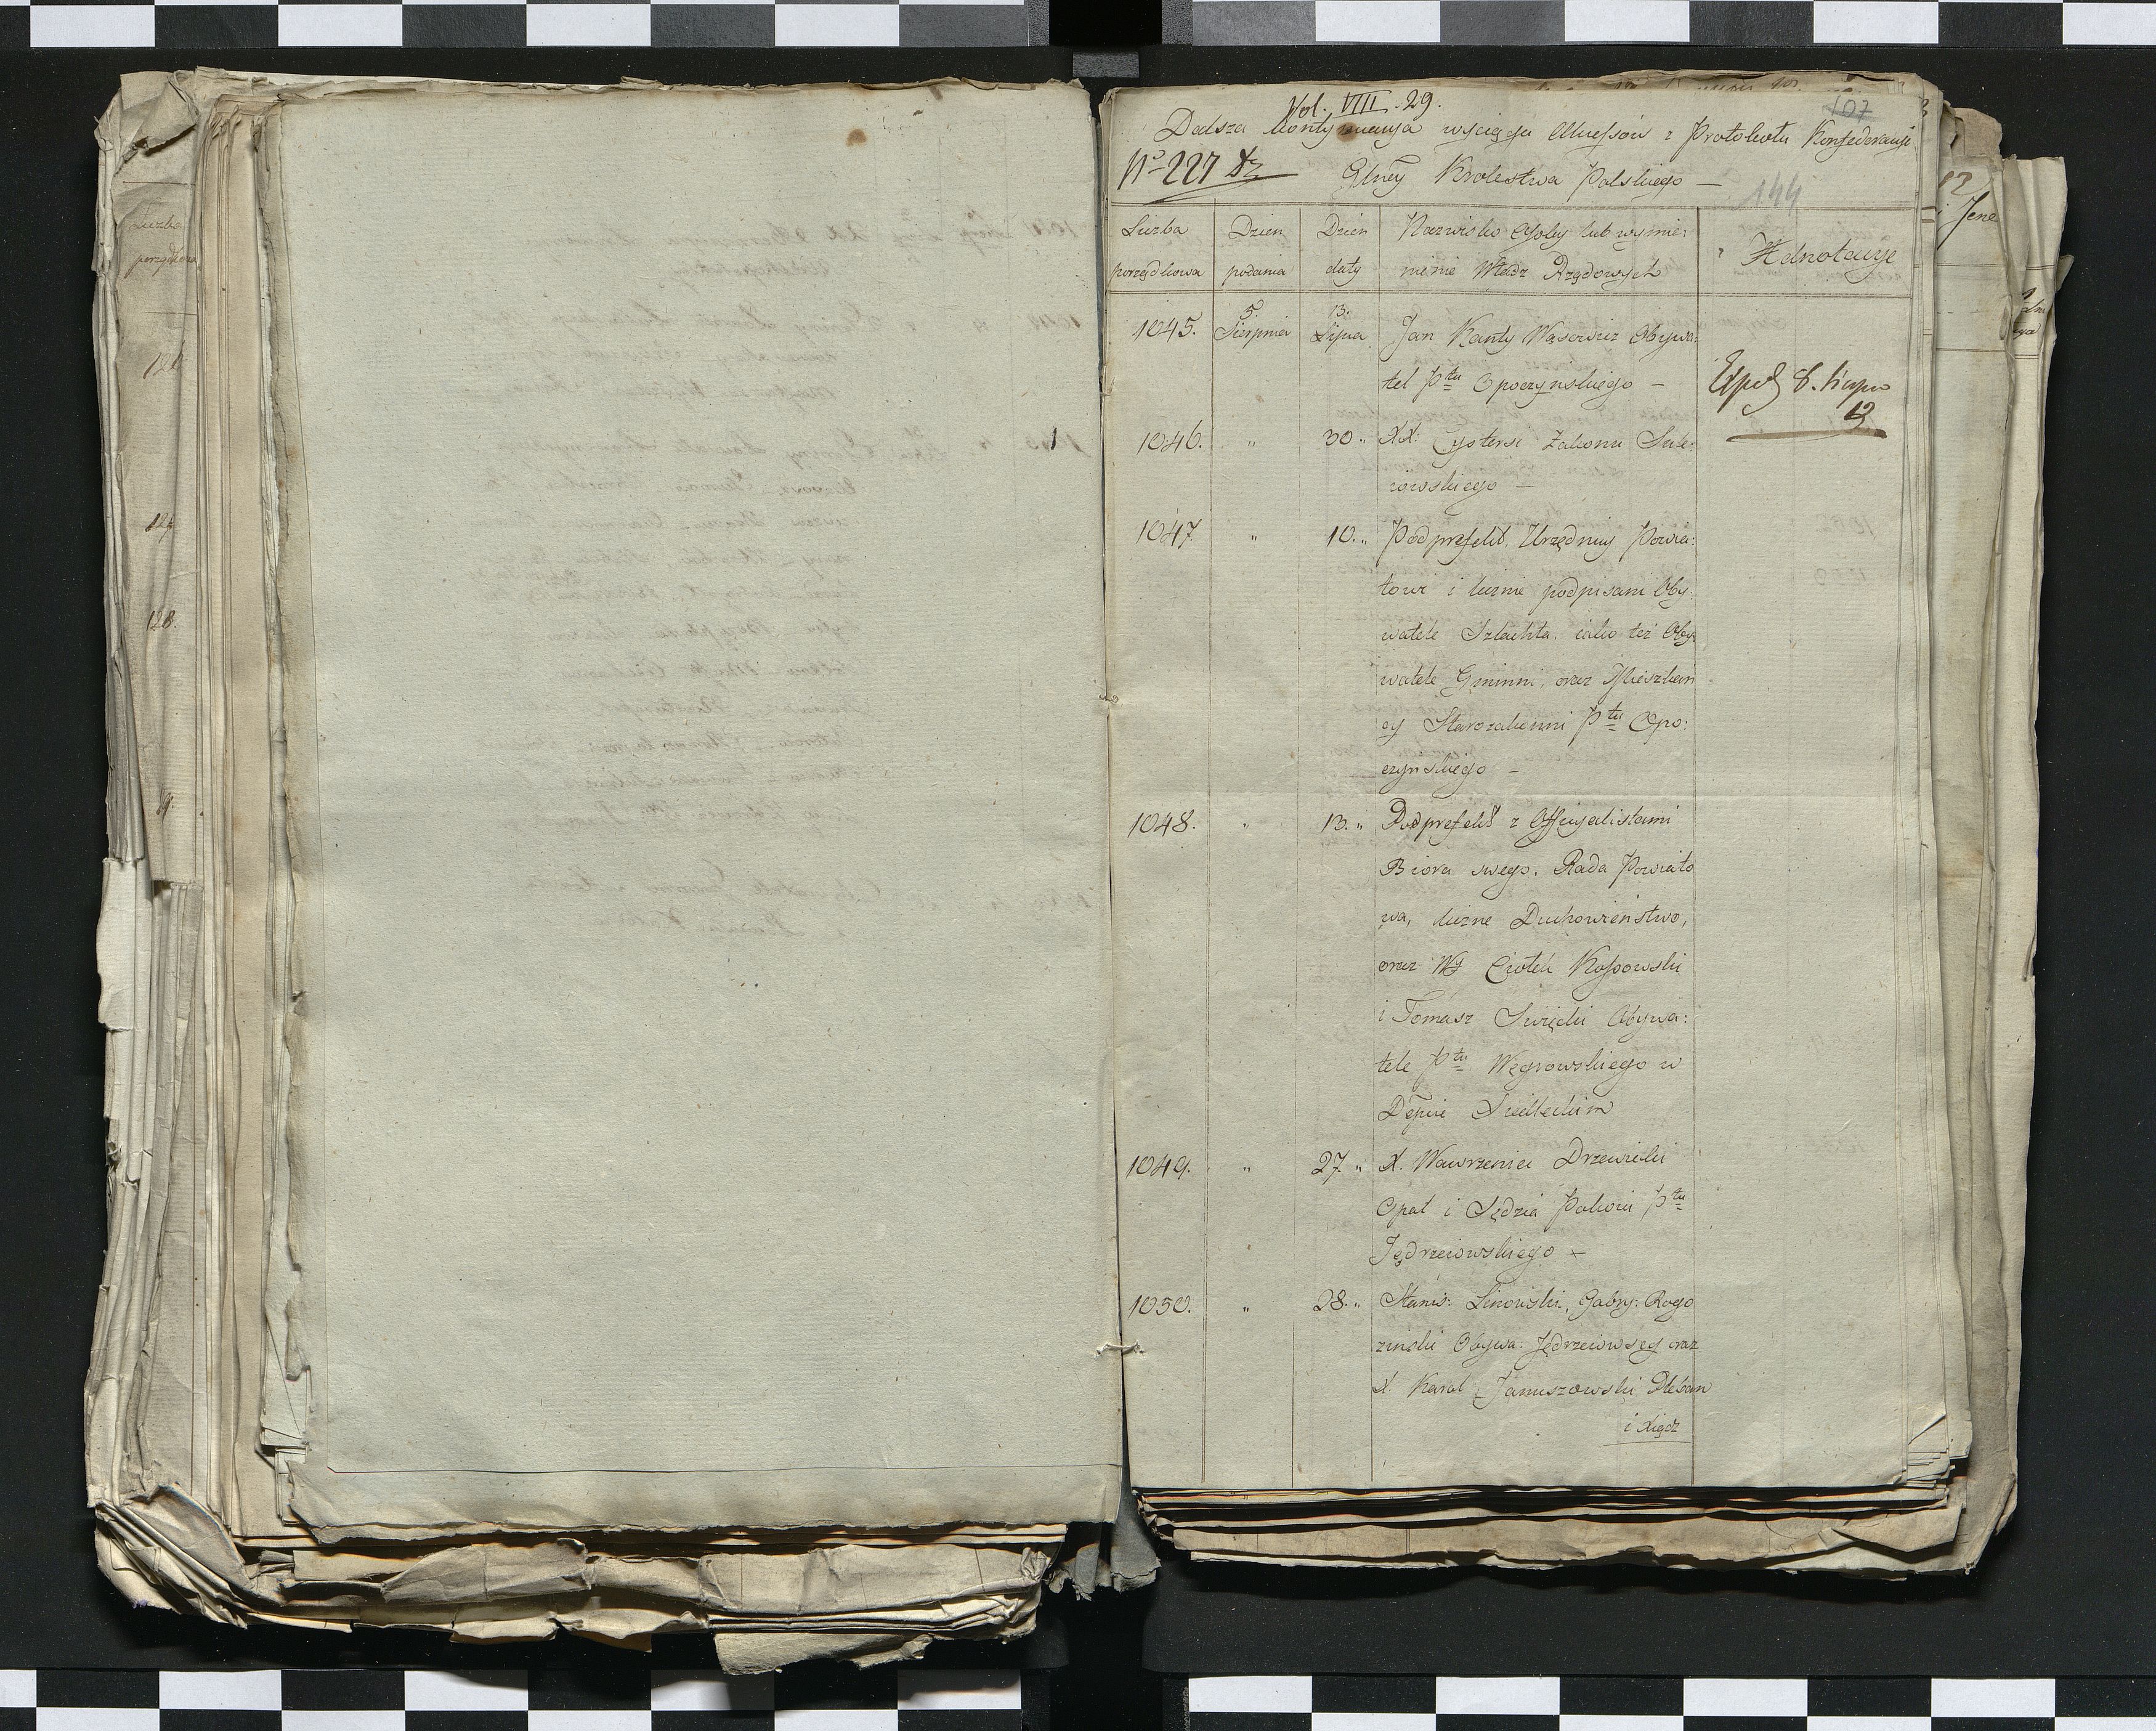 Vol. VIII. 29.
107
Dalsza kontynuacya wyciągu Akcessów z Protokołu Konfederacyi
Nº 227
Glney Krolestwa Polskiego —
144
Liczba porządkowa
Dzien podania
Dzien daty
Nazwisko Osoby lub wymie: nienie Władz Rządowych
Adnotacye
1045. 5. Sierpnia 13. Lipca Jan Kanty Wąsowicz Obywa:
tel Ptu Opoczynskiego —
Exped 8. Sierpnia
12
1046. " 30 " XX: Cystersi Zakonu Sule:
iowskiego —
1047. " 10. " Podprefekt, Urzędnicy Powia:
towi i licznie podpisani Oby:
watele Szlachta, iako też Oby
watele Gminni, oraz Mieszkań
cy Starozakonni Ptu Opo:
czynskiego —
1048. " 13. " Podprefekt z Officyalistami
Biora swego, Rada Powiato
wa, liczne Duchowieństwo,
oraz WJ Ciołek Kossowski
i Tomasz Swięcki Obywa:
tele Ptu Węgrowskiego w
Depcie Siedleckim
1049. " 27. " X. Wawrzeniec Drzewicki
Opat i Sędzia Pokoiu Ptu
Jędrzeiowskiego —
1050. " 28. " Stanis: Linowski, Gabry: Rogo
zinski Obywa. Jędrzeiowscy oraz
X. Karol Januszowski Pleban
i Xiądz
Liczba
porządkowa
128.